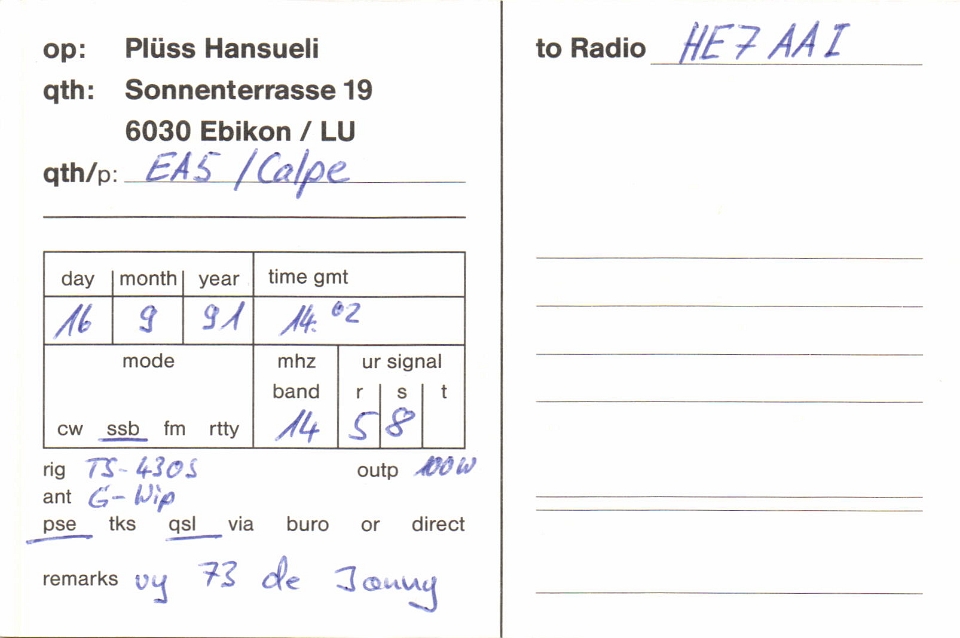 op: Plüss Hansueli
qth: Sonnenterrasse 19
6030 Ebikon / LU
qth/p: EA5 / Calpe
day month year time gmt
16 9 91 14.02
mode mhz ur signal
band r s t
cw ssb fm rtty 14 5 8
rig TS-430S outp 100W
ant G-Wip
pse tks qsl via buro or direct
remarks vy 73 de Jonny
to Radio HE7AAI